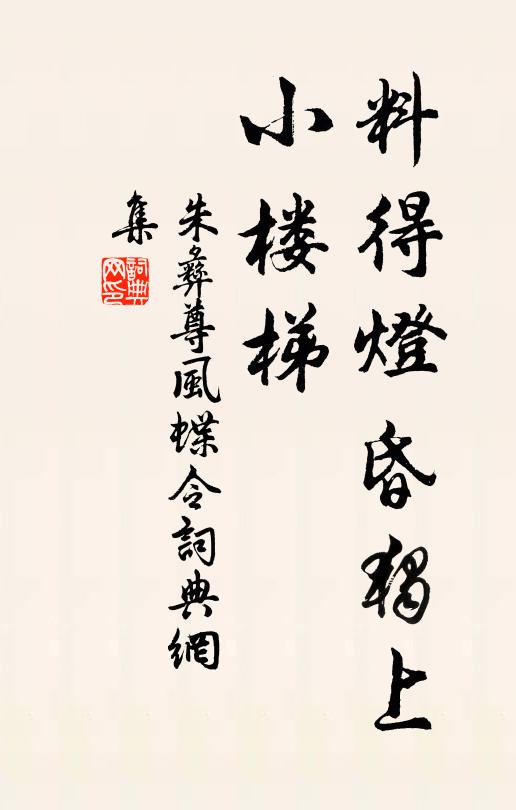 料得燈昏獨上
小楼梯
朱彝尊風蝶令詞典網
集
詞典
网印